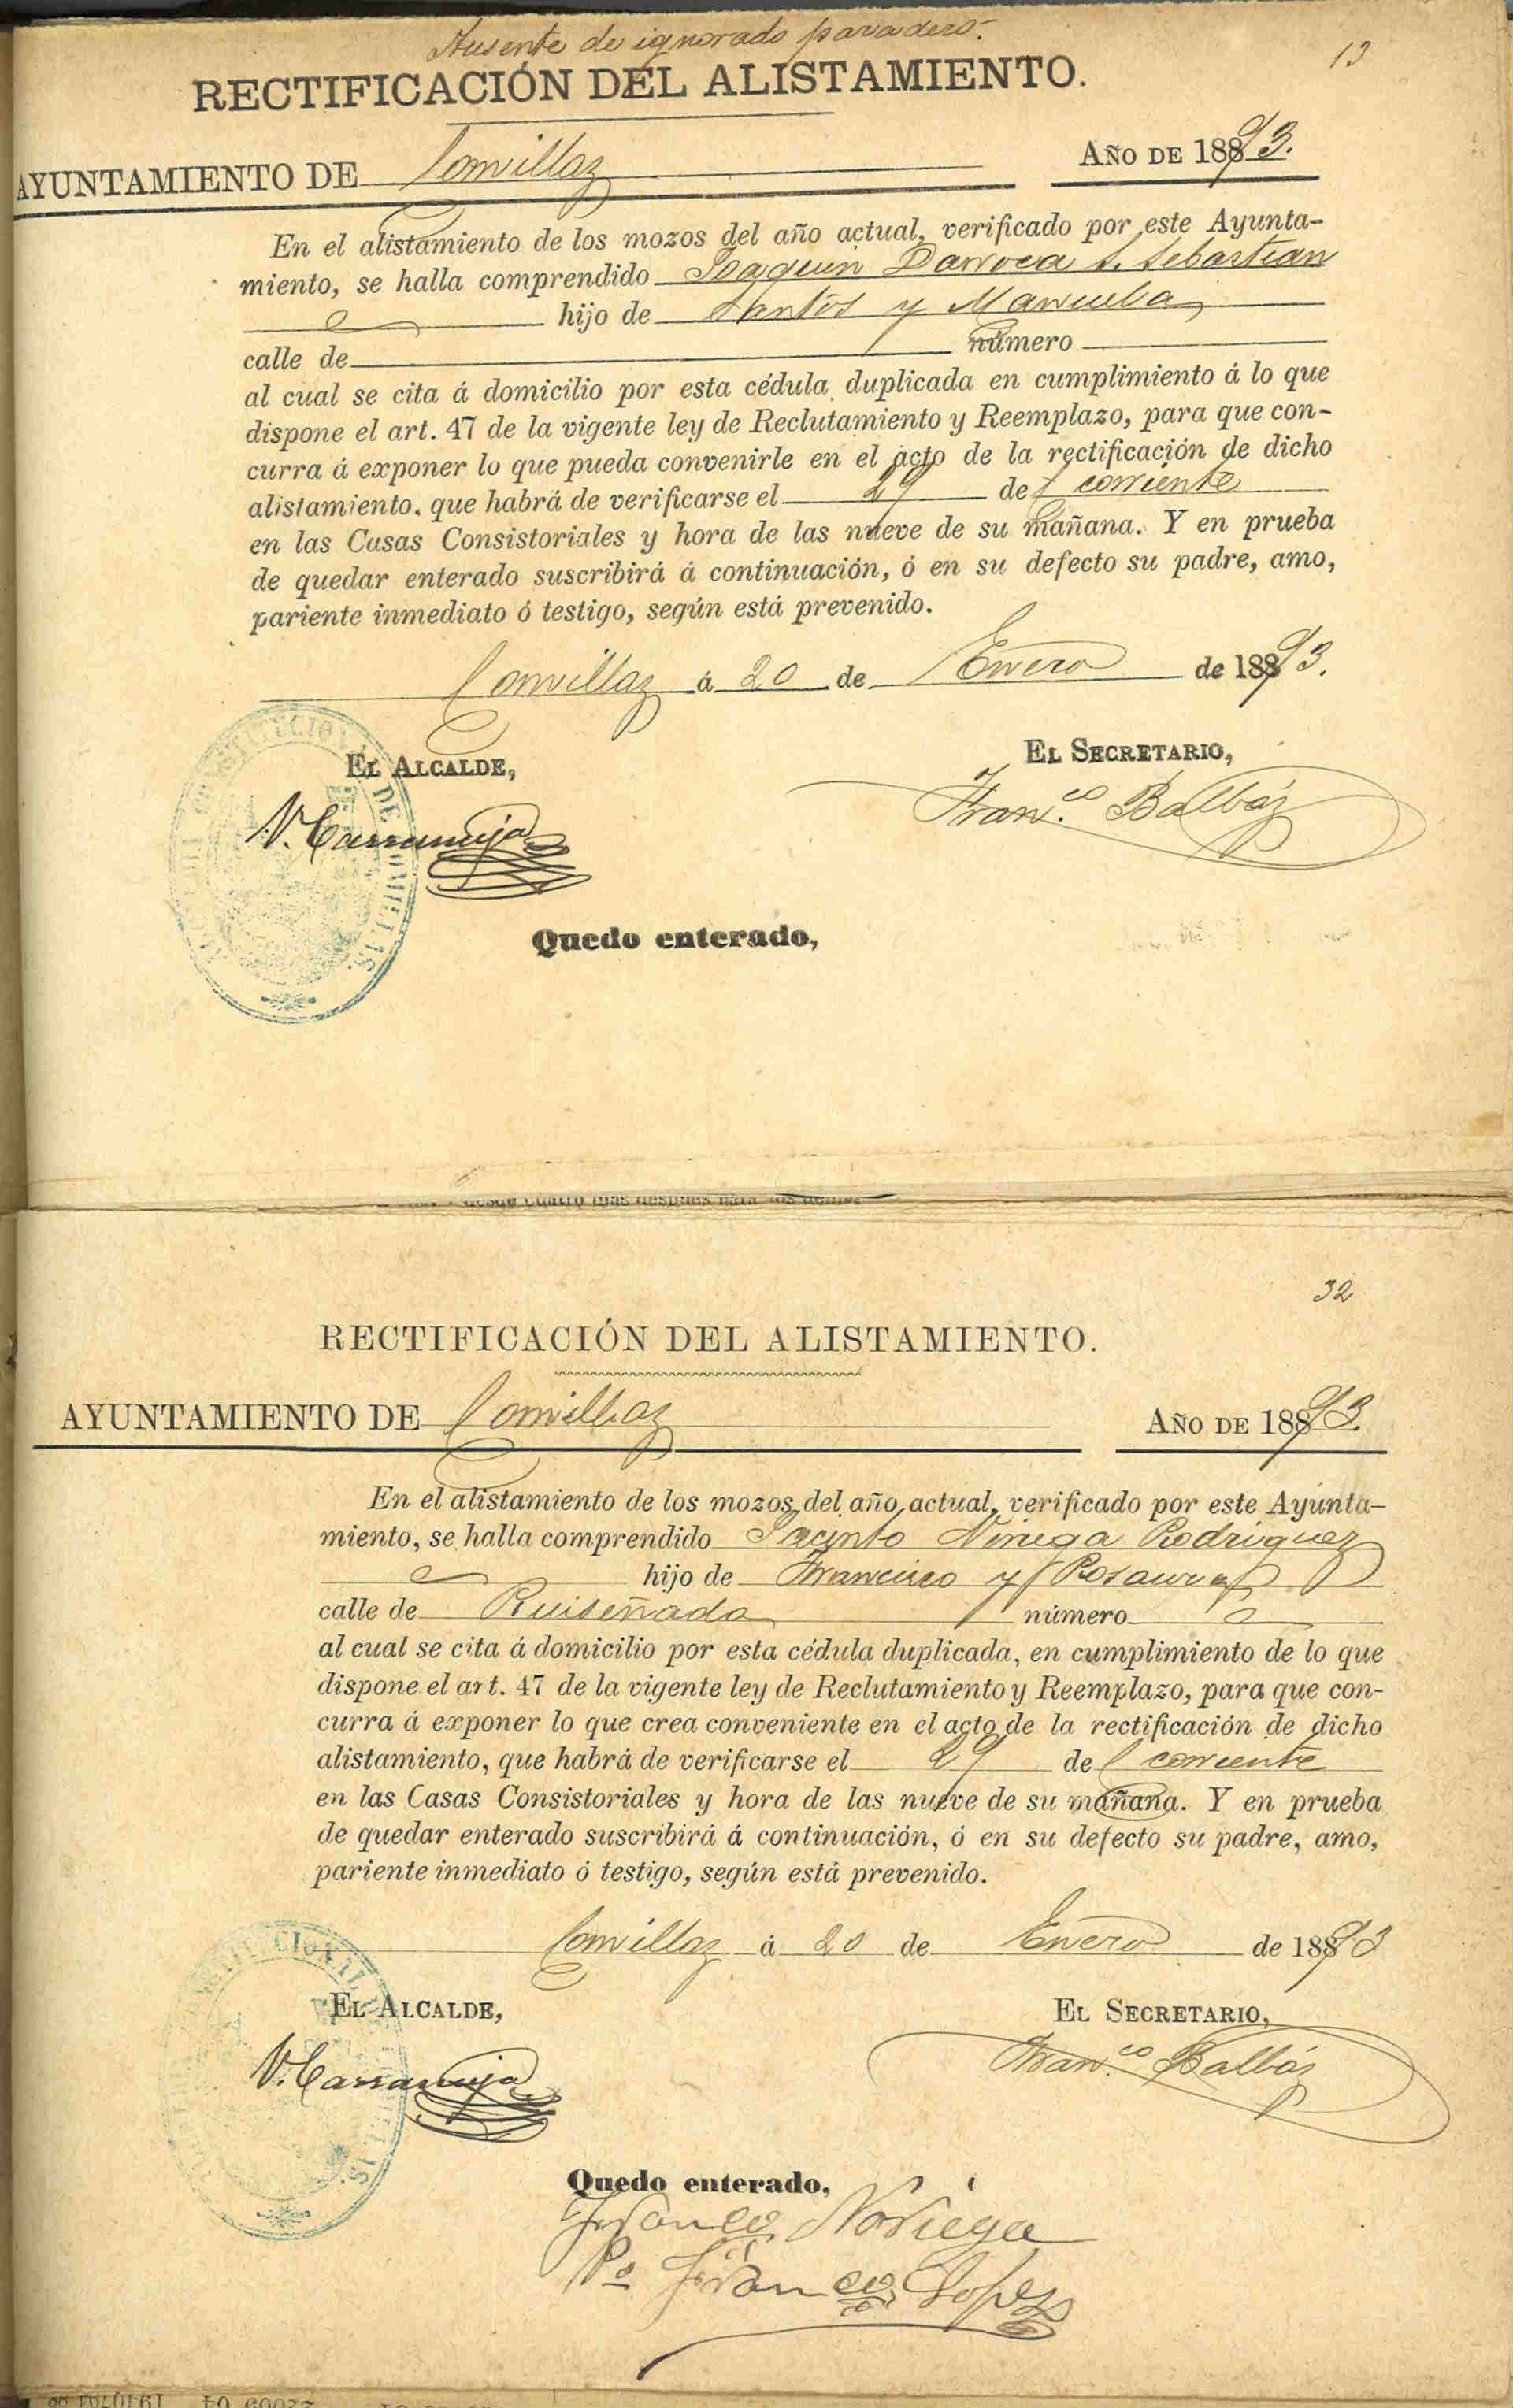 Ausente de ignorado paradero.
13
RECTIFICACIÓN DEL ALISTAMIENTO.
AYUNTAMIENTO DE Comillas AÑO DE 18893.
En el alistamiento de los mozos del año actual, verificado por este Ayunta-
miento, se halla comprendido Joaquin Darroca S. Sebastian
hijo de Santos y Manuela
calle de número
al cual se cita á domicilio por esta cédula duplicada en cumplimiento á lo que
dispone el art. 47 de la vigente ley de Reclutamiento y Reemplazo, para que con-
curra á exponer lo que pueda convenirle en el acto de la rectificación de dicho
alistamiento, que habrá de verificarse el 29 del corriente
en las Casas Consistoriales y hora de las nueve de su mañana. Y en prueba
de quedar enterado suscribirá á continuación, ó en su defecto su padre, amo,
pariente inmediato ó testigo, según está prevenido.
Comillas á 20 de Enero de 18893.
EL ALCALDE, EL SECRETARIO,
Fran.co Balbás
Quedo enterado,
32
RECTIFICACIÓN DEL ALISTAMIENTO.
AYUNTAMIENTO DE Comillas AÑO DE 18893.
En el alistamiento de los mozos del año actual, verificado por este Ayunta-
miento, se halla comprendido Jacinto Noriega Rodriguez
hijo de Francisco y Rosaura
calle de Ruiseñada número
al cual se cita á domicilio por esta cédula duplicada, en cumplimiento de lo que
dispone el art. 47 de la vigente ley de Reclutamiento y Reemplazo, para que con-
curra á exponer lo que crea conveniente en el acto de la rectificación de dicho
alistamiento, que habrá de verificarse el 29 del corriente
en las Casas Consistoriales y hora de las nueve de su mañana. Y en prueba
de quedar enterado suscribirá á continuación, ó en su defecto su padre, amo,
pariente inmediato ó testigo, según está prevenido.
Comillas á 20 de Enero de 18893
EL ALCALDE, EL SECRETARIO,
Fran.co Balbás
Quedo enterado,
Franco Noriega
Po Franco Lopez